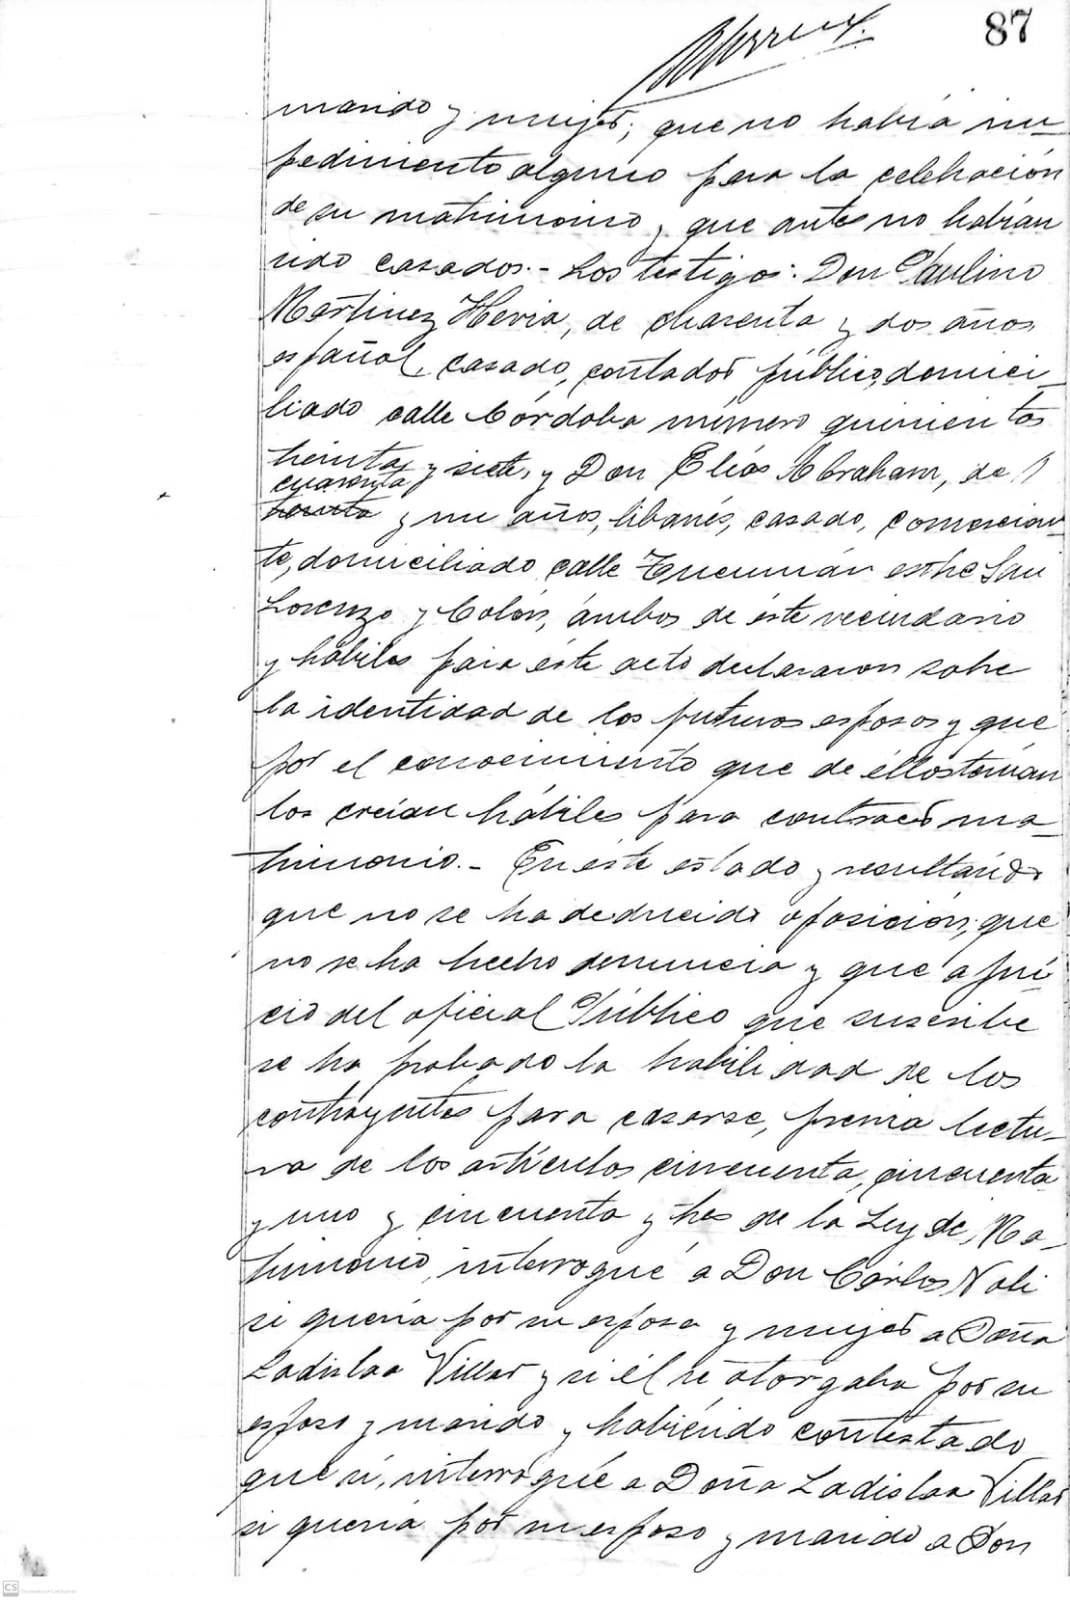 87
marido y mujer; que no había im-
pedimento alguno para la celebración
de su matrimonio y que antes no habían
sido casados.- Los testigos: Don Paulino
Martinez Hevia, de cuarenta y dos años,
español, casado, contador público, domici-
liado calle Córdoba número quinientos
treinta y siete, y Don Elías Abraham, de
cuarenta
treinta y un años, libanés, casado, comercian-
te, domiciliado calle Tucumán entre San
Lorenzo y Colón, ámbos de éste vecindario
y hábiles para éste acto declararon sobre
la identidad de los futuros esposos y que
por el conocimiento que de éllos tenían
los creían hábiles para contraer ma-
trimonio.- En éste estado y resultando
que no se ha deducido oposición, que
no se ha hecho denuncia y que a jui-
cio del oficial Público que suscribe
se ha probado la habilidad de los
contrayentes para casarse, previa lectu-
ra de los artículos cincuenta, cincuenta
y uno y cincuenta y tres de la Ley de Ma-
trimonio, interrogué a Don Cárlos Nali
si quería por su esposa y mujer a Doña
Ladislaa Villar y si él se otorgaba por su
esposo y marido y habiéndo contestado
que sí, interrogué a Doña Ladislaa Villar
si quería por su esposo y marido a Don
CS